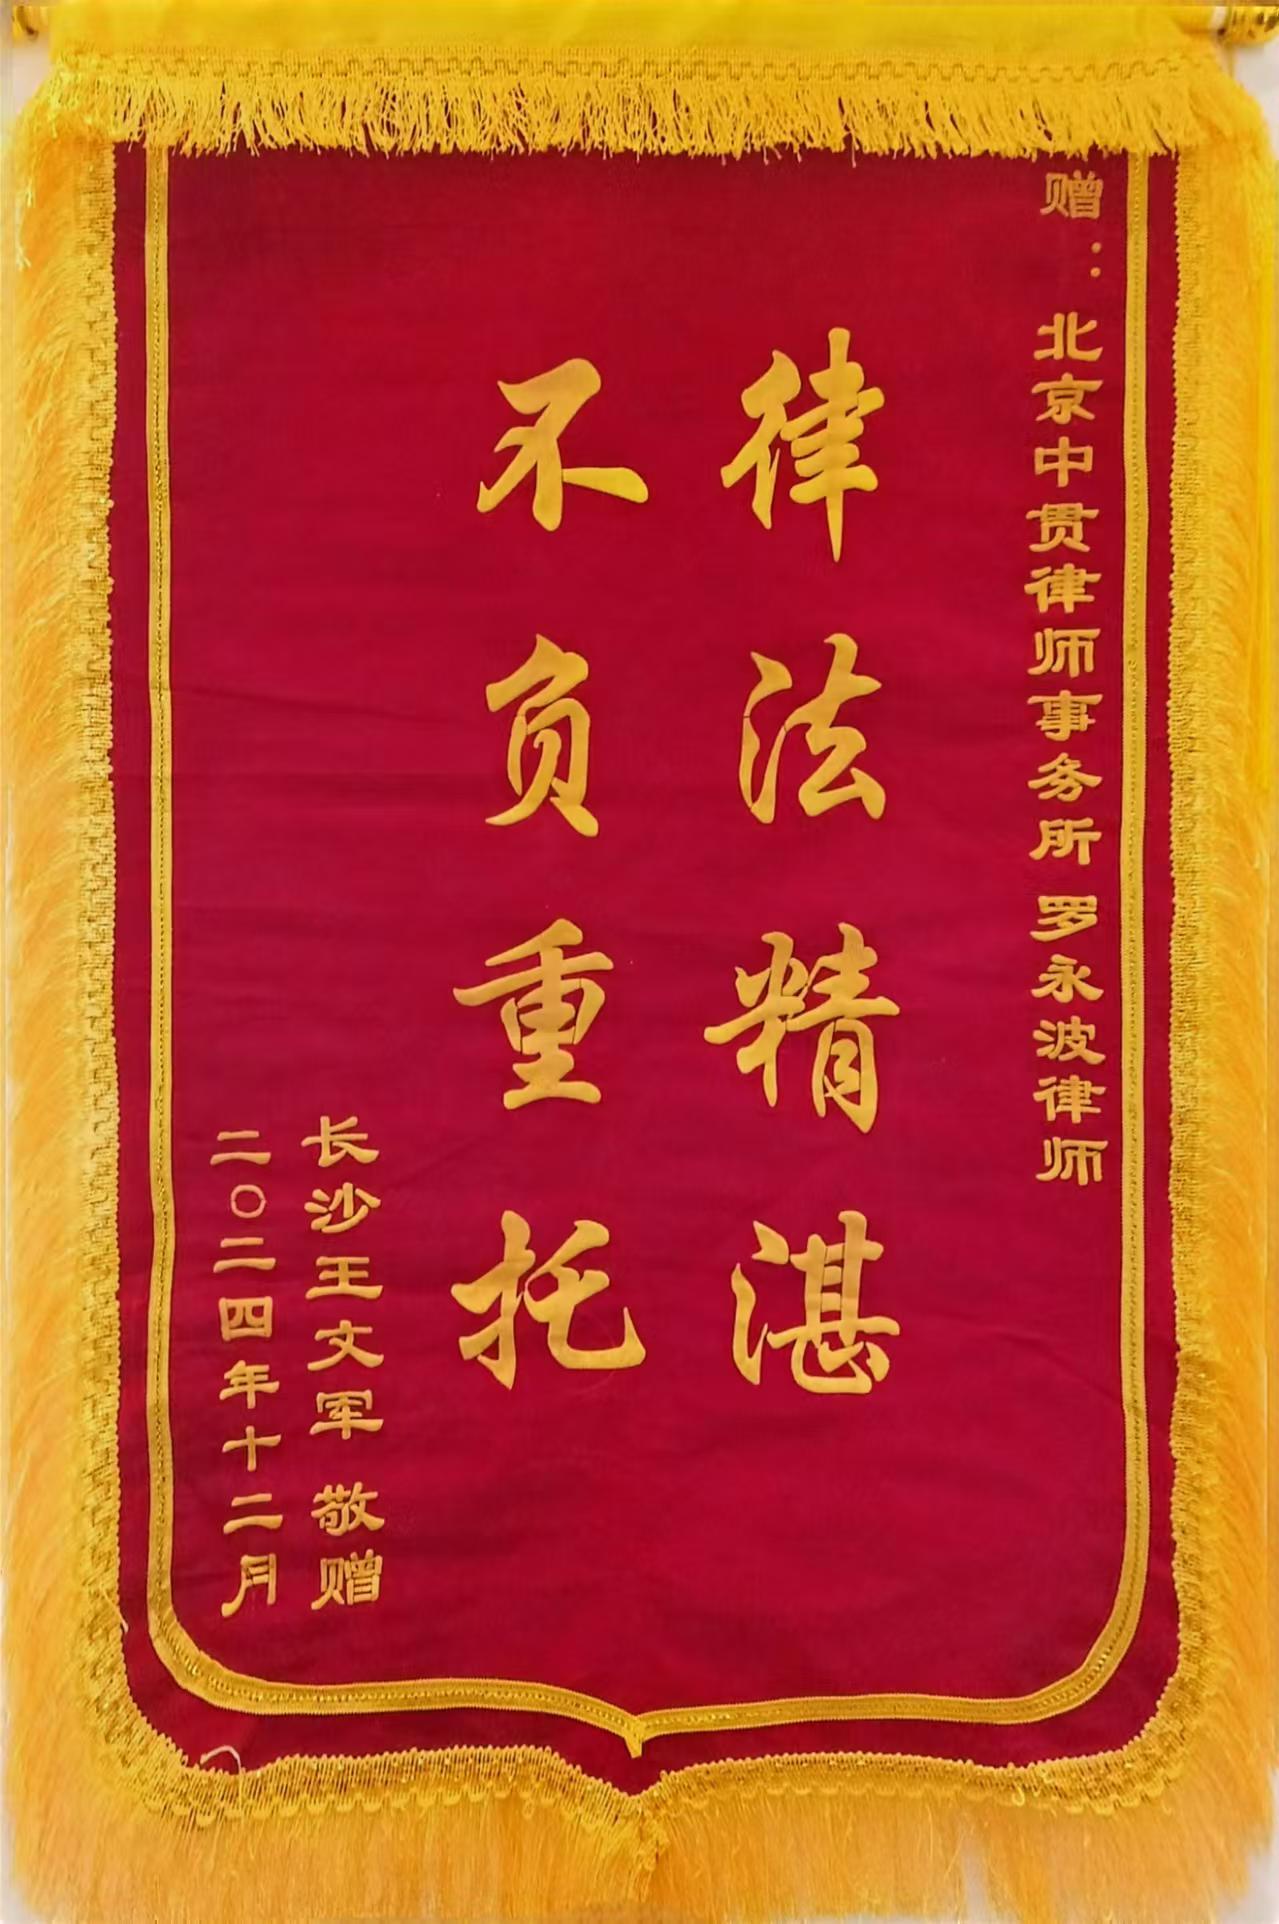 赠：北京中贯律师事务所 罗永波律师
律法精湛
不负重托
长沙王文军 敬赠
二〇二四年十二月